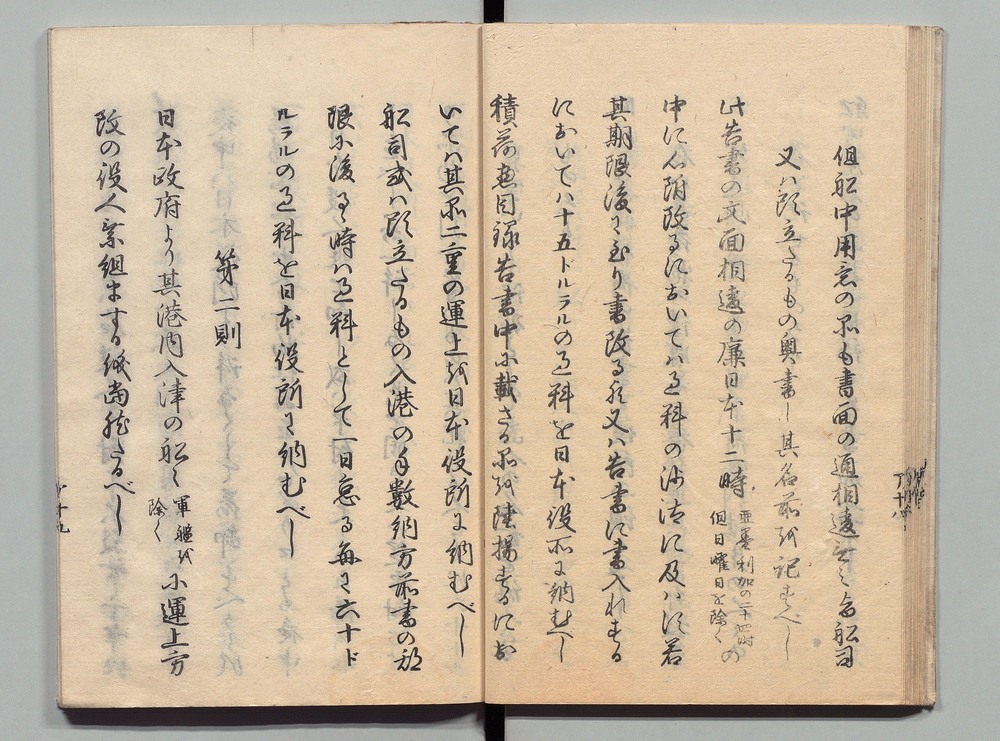 但船中用意の品も書面の通相違無之旨船司
又ハ頭立たるもの奥書し其名前を記すへし
此告書の文面相違の廉日本十二時 亜墨利加の二十四時 但日曜日を除く の
中に令附改るにおいてハ過料の沙汰に及ハす若
其期限後に至り書改る歟又ハ告書に書入れする
においてハ十五ドルラルの過料を日本役所に納むへし
積荷惣目録告書中に載さる品を陸揚するにお
いてハ其品二重の運上を日本役所に納むべし
船司或ハ頭立たるもの入港の手数納方前書の刻
限に後るゝ時ハ過料として一日怠る毎に六十ド
ルラルの過料を日本役所に納むべし
第二則
日本政府より其港内入津の船々 軍艦を 除く に運上方
改の役人乗組まする儀尚然たるべし
丁十八
丁十九